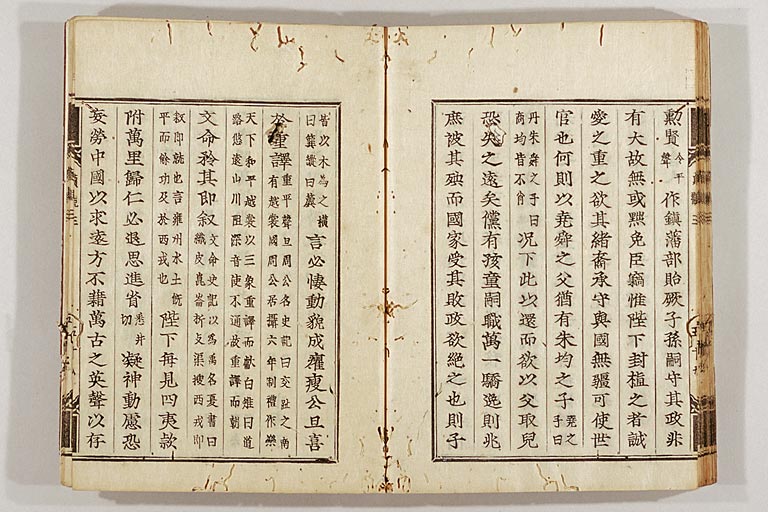 勲賢令平聲作鎮藩部貽厥子孫嗣守其政非
有大故無或黜免臣竊惟陛下封植之者誠
愛之重之欲其緒裔承守與國無疆可使世
官也何則以堯舜之父猶有朱均之子堯之子曰
丹朱舜之子曰商均皆不肖况下此以還而欲以父取兒
恐失之遠矣儻有孩童嗣職萬一驕逸則兆
庶被其殃而國家受其敗政欲絶之也則子
皆以木為之橫曰簨讀曰虡言必悽動貌成癯瘦公旦喜
於重譯重平聲旦周公名史記曰交趾之南有越裳國周公居攝六年制禮作樂
天下和平越裳以三象重譯而獻白雉曰道路悠遠山川阻深音使不通故重譯而朝
文命矜其即叙文命史記以為禹名夏書曰織皮崑崙析支渠搜西戎即
叙即就也言雍州水土旣平而餘功及於西戎也陛下每見四夷款
附萬里歸仁必退思進省悉井切凝神動慮恐
妄勞中國以求遠方不藉萬古之英聲以存